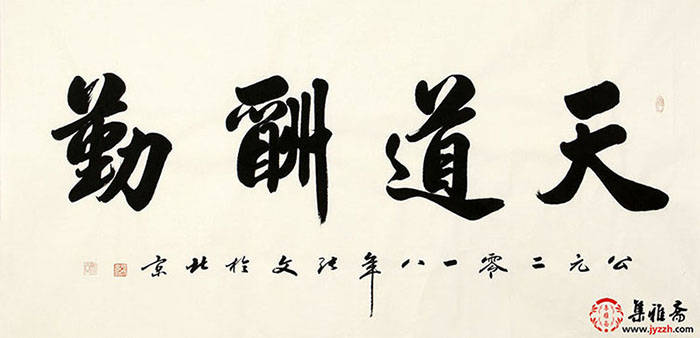 天道酬勤
公元二零一八年张文於北京
集雅斋
www.jyzzh.com